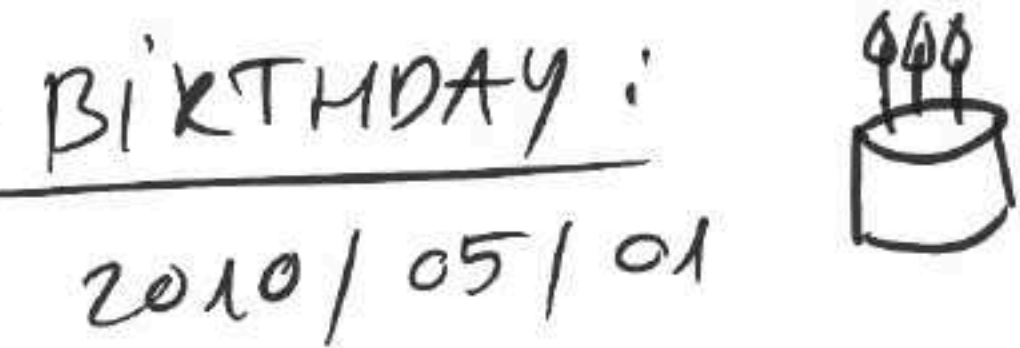 BiRTHDAY :
2010 / 05 / 01